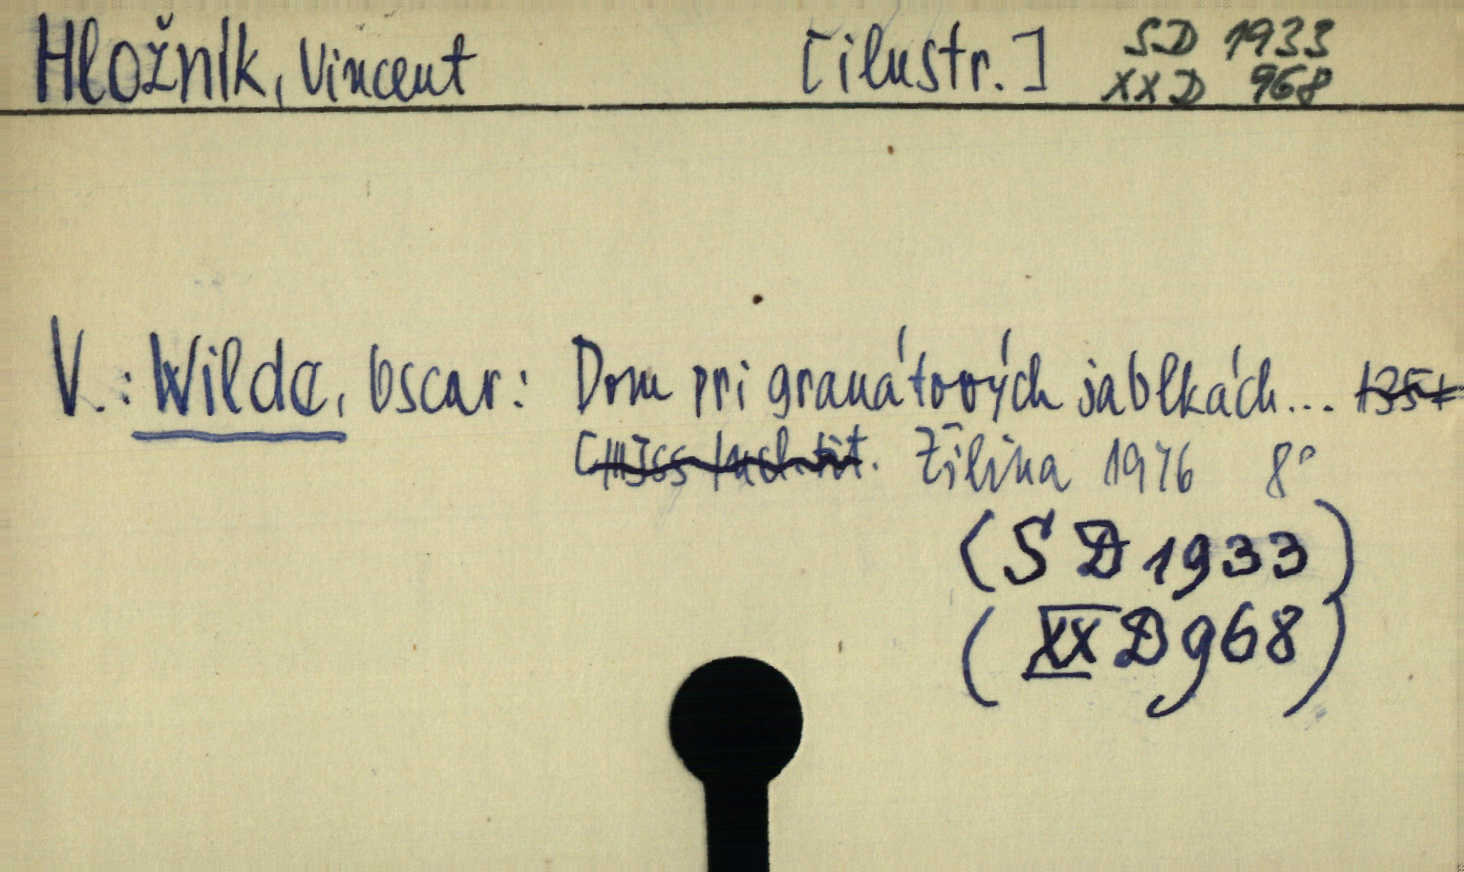 Hložník, Vincent [ilustr.] SD 1933
XXD 968
V.: Wilde, Oscar: Dom pri granátových jablkách...
Žilina 1976 8°
(SD 1933)
(XXD 968)